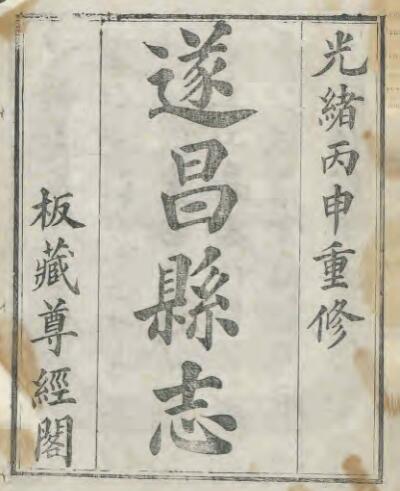 光緒丙申重修
遂昌縣志
板藏尊經閣